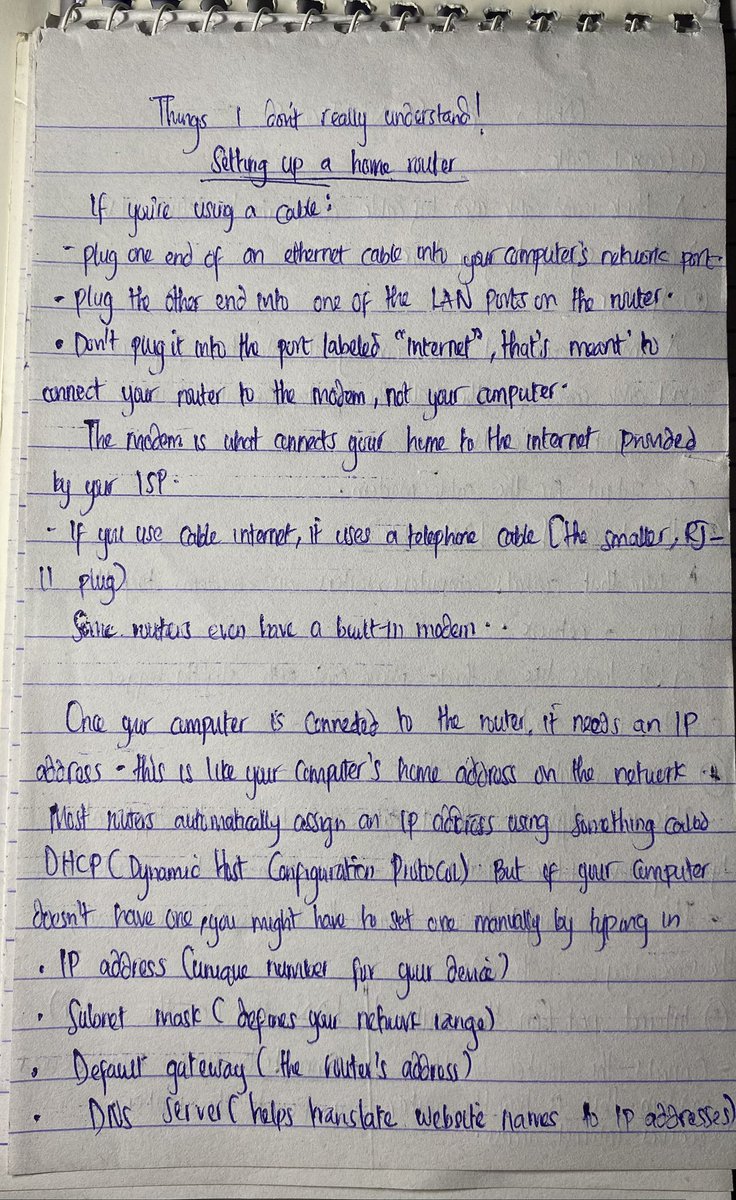 Things I don't really understand!
Setting up a home router
If you're using a cable:
- plug one end of an ethernet cable into your computer's network port.
- plug the other end into one of the LAN ports on the router.
• Don't plug it into the port labeled "internet", that's meant to
connect your router to the modem, not your computer.
The modem is what connects your home to the internet provided
by your ISP.
- If you use cable internet, it uses a telephone cable (the smaller, RJ-
11 plug)
Some routers even have a built-in modem..
Once your computer is connected to the router, it needs an IP
address - this is like your computer's home address on the network.
Most routers automatically assign an IP address using something called
DHCP (Dynamic Host Configuration Protocol) But if your computer
doesn't have one, you might have to set one manually by typing in
• IP address (unique number for your device)
• Subnet mask (defines your network range)
• Default gateway (the router's address)
• DNS server (helps translate website names to IP addresses)